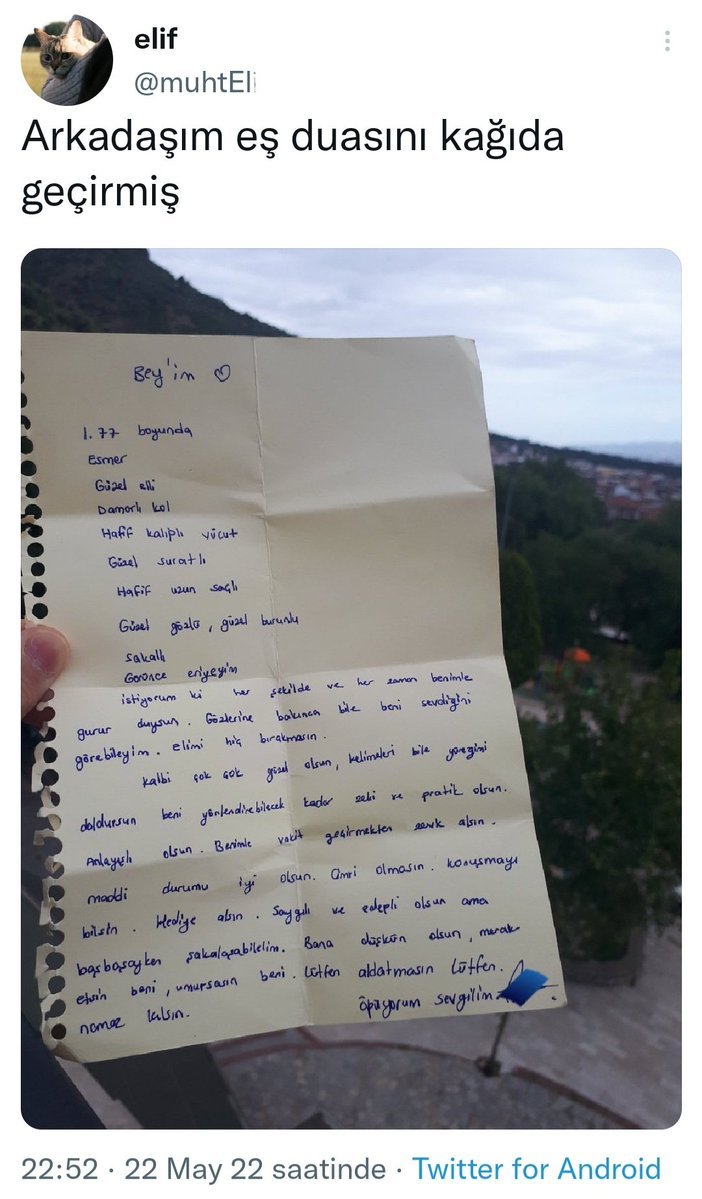 elif
@muhtEl
Arkadaşım eş duasını kağıda
geçirmiş
Bey'im ♡
1.77 boyunda
Esmer
Güzel elli
Damarlı kol
Hafif kalıplı vücut
Güzel suratlı
Hafif uzun saçlı
Güzel gözlü, güzel burunlu
sakallı
Görünce eriyeyim
istiyorum ki her şekilde ve her zaman benimle
gurur duysun. Gözlerine bakınca bile beni sevdiğini
görebileyim. elimi hiç bırakmasın.
kalbi çok çok güzel olsun, kelimeleri bile yüreğimi
doldursun beni yönlendirebilecek kadar zeki ve pratik olsun.
Anlayışlı olsun. Benimle vakit geçirmekten zevk alsın.
maddi durumu iyi olsun. Cimri olmasın. konuşmayı
bilsin. Hediye alsın. Saygılı ve edepli olsun ama
başbaşayken şakalaşabilelim. Bana düşkün olsun, merak
etsin beni, umursasın beni. Lütfen aldatmasın Lütfen.
namaz kılsın. öpüyorum sevgilim
22:52 · 22 May 22 saatinde · Twitter for Android